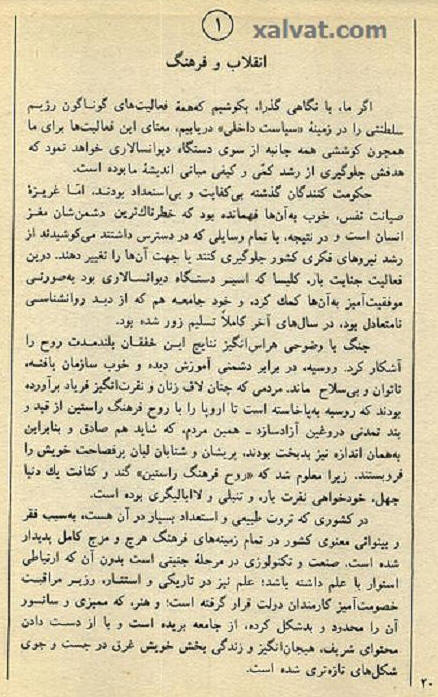 ۱
xalvat.com
انقلاب و فرهنگ
اگر ما، با نگاهی گذرا، بکوشیم که‌همهٔ فعالیت‌های گوناگون رژیم
سلطنتی را در زمینهٔ «سیاست داخلی» دریابیم، معنای این فعالیت‌ها برای ما
همچون کوششی همه جانبه از سوی دستگاه دیوانسالاری خواهد نمود که
هدفش جلوگیری از رشد کمّی و کیفی مبانی اندیشهٔ ما بوده است.
حکومت کنندگان گذشته بی‌کفایت و بی‌استعداد بودند. امّا غریزهٔ
صیانت نفس، خوب به‌آن‌ها فهمانده بود که خطرناك‌ترین دشمن‌شان مغز
انسان است و در نتیجه، با تمام وسایلی که در دسترس داشتند می‌کوشیدند از
رشد نیروهای فکری کشور جلوگیری کنند یا جهت آن‌ها را تغییر دهند. درین
فعالیت جنایت بار، کلیسا که اسیر دستگاه دیوانسالاری بود به‌صورتی
موفقیت‌آمیز به‌آن‌ها کمك کرد، و خود جامعه هم که از دید روانشناسی
نامتعادل بود، در سال‌های آخر کاملاً تسلیم زور شده بود.
جنگ با وضوحی هراس‌انگیز نتایج این خفقان بلندمدت روح را
آشکار کرد. روسیه، در برابر دشمنی آموزش دیده و خوب سازمان یافته،
ناتوان و بی‌سلاح ماند. مردمی که چنان لاف زنان و نفرت‌انگیز فریاد برآورده
بودند که روسیه به‌پاخاسته است تا اروپا را با روح فرهنگ راستین از قید و
بند تمدنی دروغین آزادسازد ـ همین مردم، که شاید هم صادق و بنابراین
به‌همان اندازه نیز بدبخت بودند، پریشان و شتابان لبان پرفصاحت خویش را
فروبستند. زیرا معلوم شد که «روح فرهنگ راستین» گند و کثافت یك دنیا
جهل، خودخواهی نفرت بار، و تنبلی و لاابالیگری بوده است.
در کشوری که ثروت طبیعی و استعداد بسیار در آن هست، به‌سبب فقر
و بینوائی معنوی کشور در تمام زمینه‌های فرهنگ هرج و مرج کامل پدیدار
شده است. صنعت و تکنولوژی در مرحلهٔ جنینی است بدون آن که ارتباطی
استوار با علم داشته باشد؛ علم نیز در تاریکی و استتار، وزیر مراقبت
خصومت‌آمیز کارمندان دولت قرار گرفته است؛ و هنر، که ممیزی و سانسور
آن را محدود و بدشکل کرده، از جامعه بریده است و با از دست دادن
محتوای شریف، هیجان‌انگیز و زندگی بخش خویش غرق در جست و جوی
شکل‌های تازه‌تری شده است.
۲۰